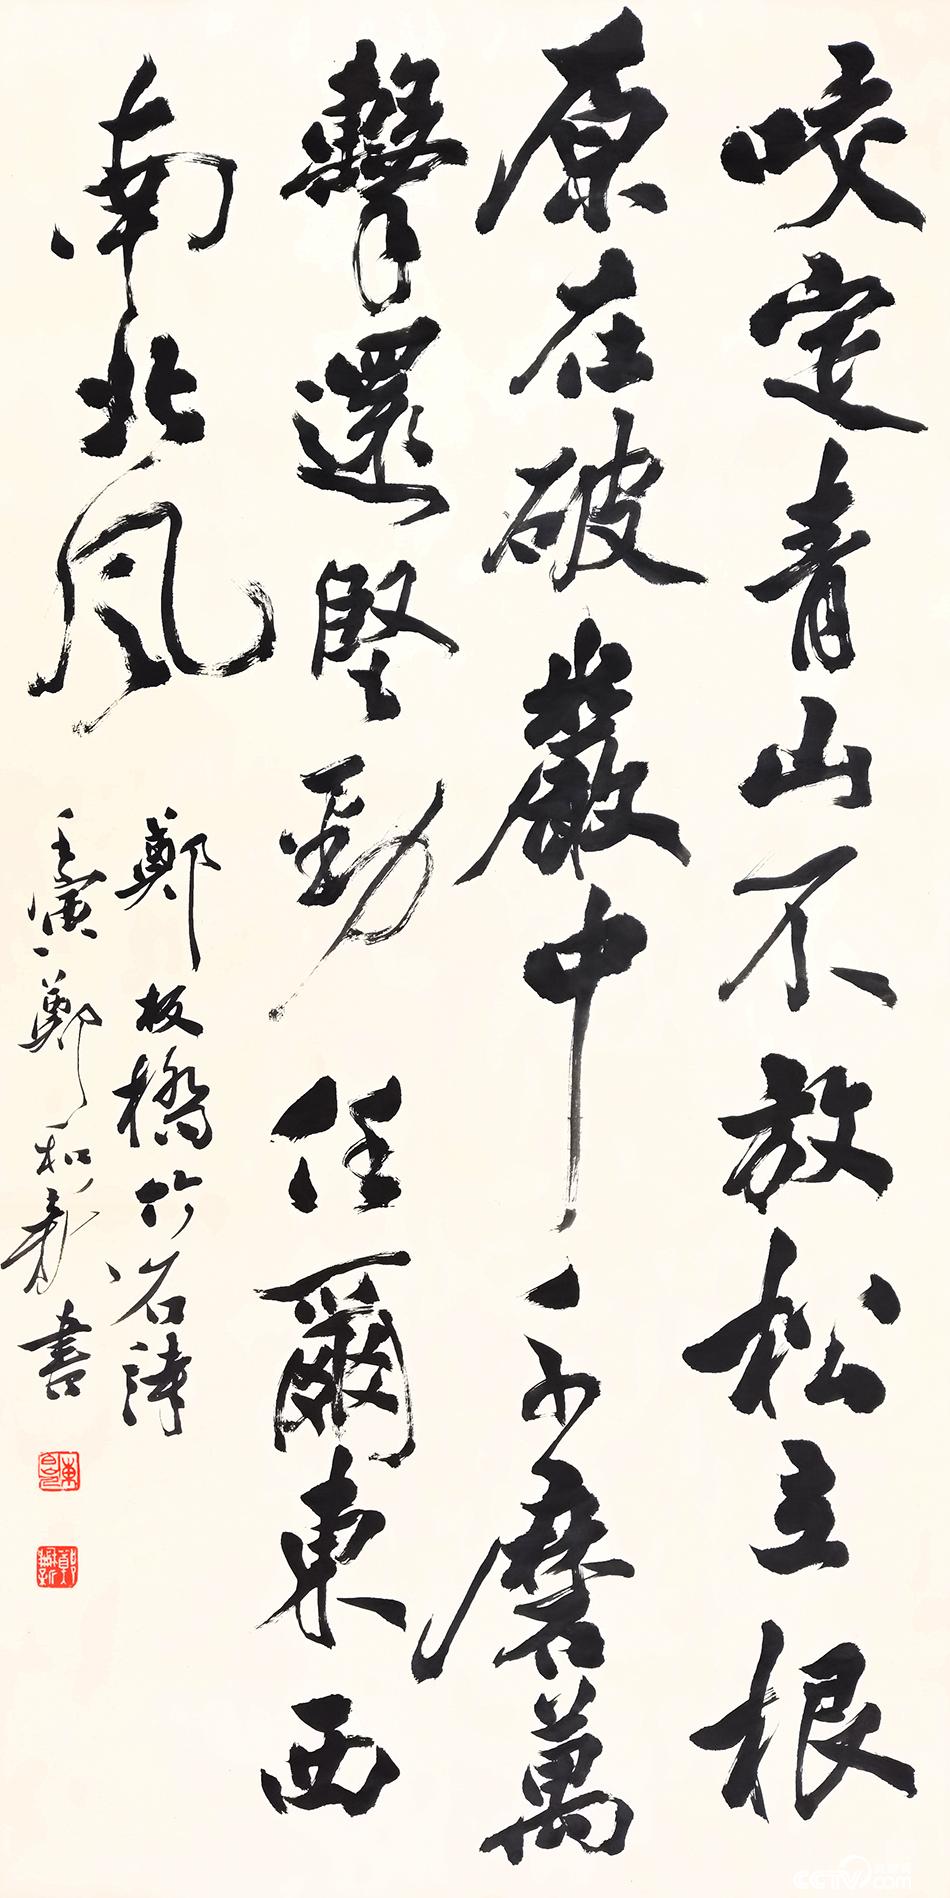 咬定青山不放松立根
原在破巖中千磨萬
擊還堅勁任爾東西
南北風
鄭板橋竹石詩
壬寅鄭和書
CCTV.com